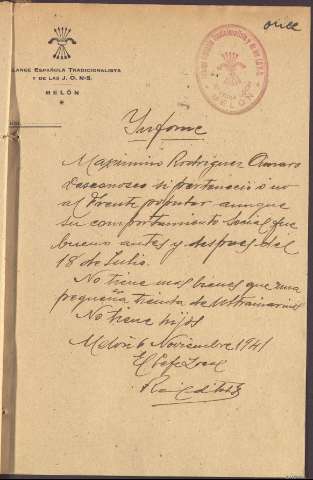 once
LANGE ESPAÑOLA TRADICIONALISTA
Y DE LAS J. O. N-S.
MELÓN
MELON
Informe
Maximino Rodriguez Amaro
Desconosco si pertenecio o no
al Frente popular aunque
su comportamiento Social fue
bueno antes y despues del
18 de Julio.
No tiene mas bienes que una
pequeña tienda de Ultramarinos
No tiene hijos
Melón 6 Noviembre 1941
El Jefe Local